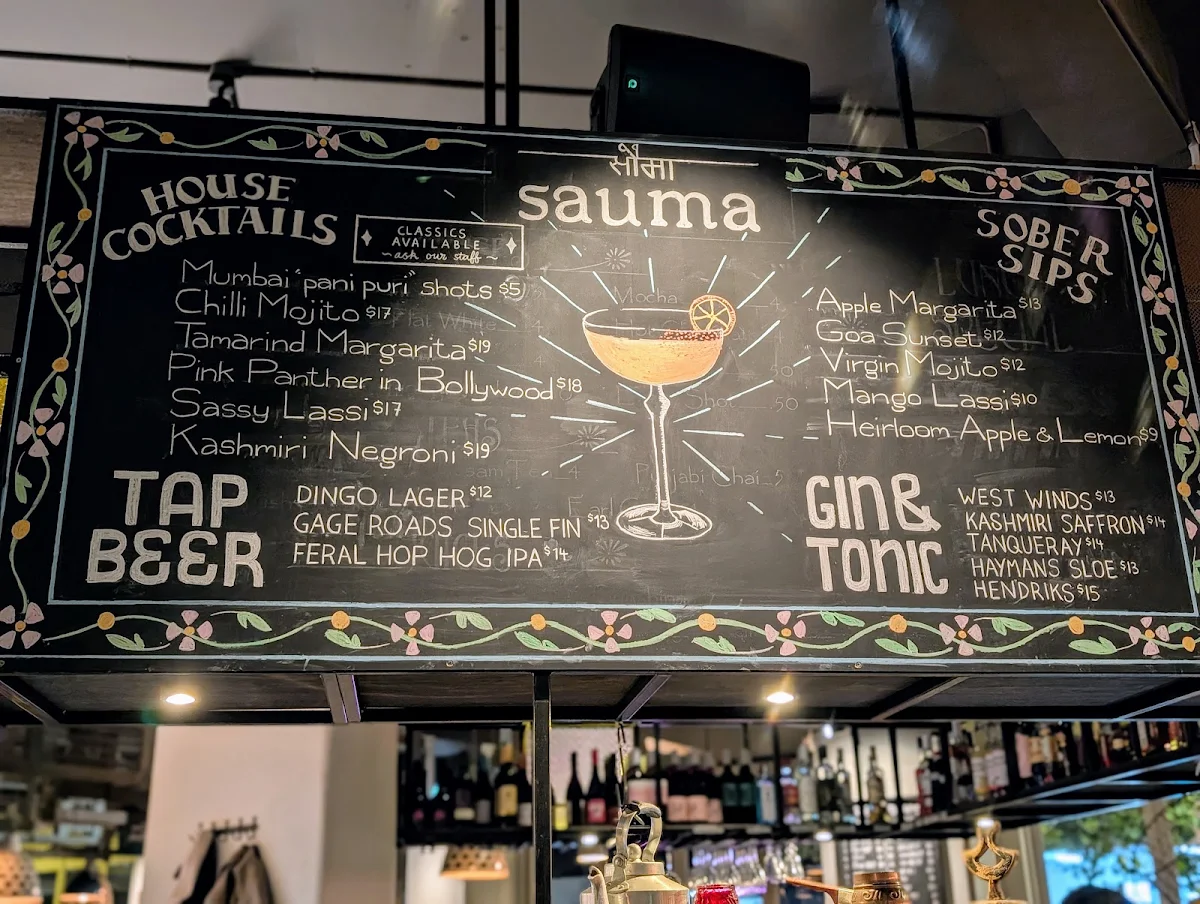 सौमा
sauma
HOUSE
COCKTAILS
CLASSICS
AVAILABLE
~ask our staff~
Mumbai "pani puri" shots $5
Chilli Mojito $17
Tamarind Margarita $19
Pink Panther in Bollywood $18
Sassy Lassi $17
Kashmiri Negroni $19
TAP
BEER
DINGO LAGER $12
GAGE ROADS SINGLE FIN $13
FERAL HOP HOG IPA $14
SOBER
SIPS
Apple Margarita $13
Goa Sunset $12
Virgin Mojito $12
Mango Lassi $10
Heirloom Apple & Lemon $9
GIN &
TONIC
WEST WINDS $13
KASHMIRI SAFFRON $14
TANQUERAY $14
HAYMANS SLOE $13
HENDRIKS $15
Mocha
Flat White
Punjabi Chai